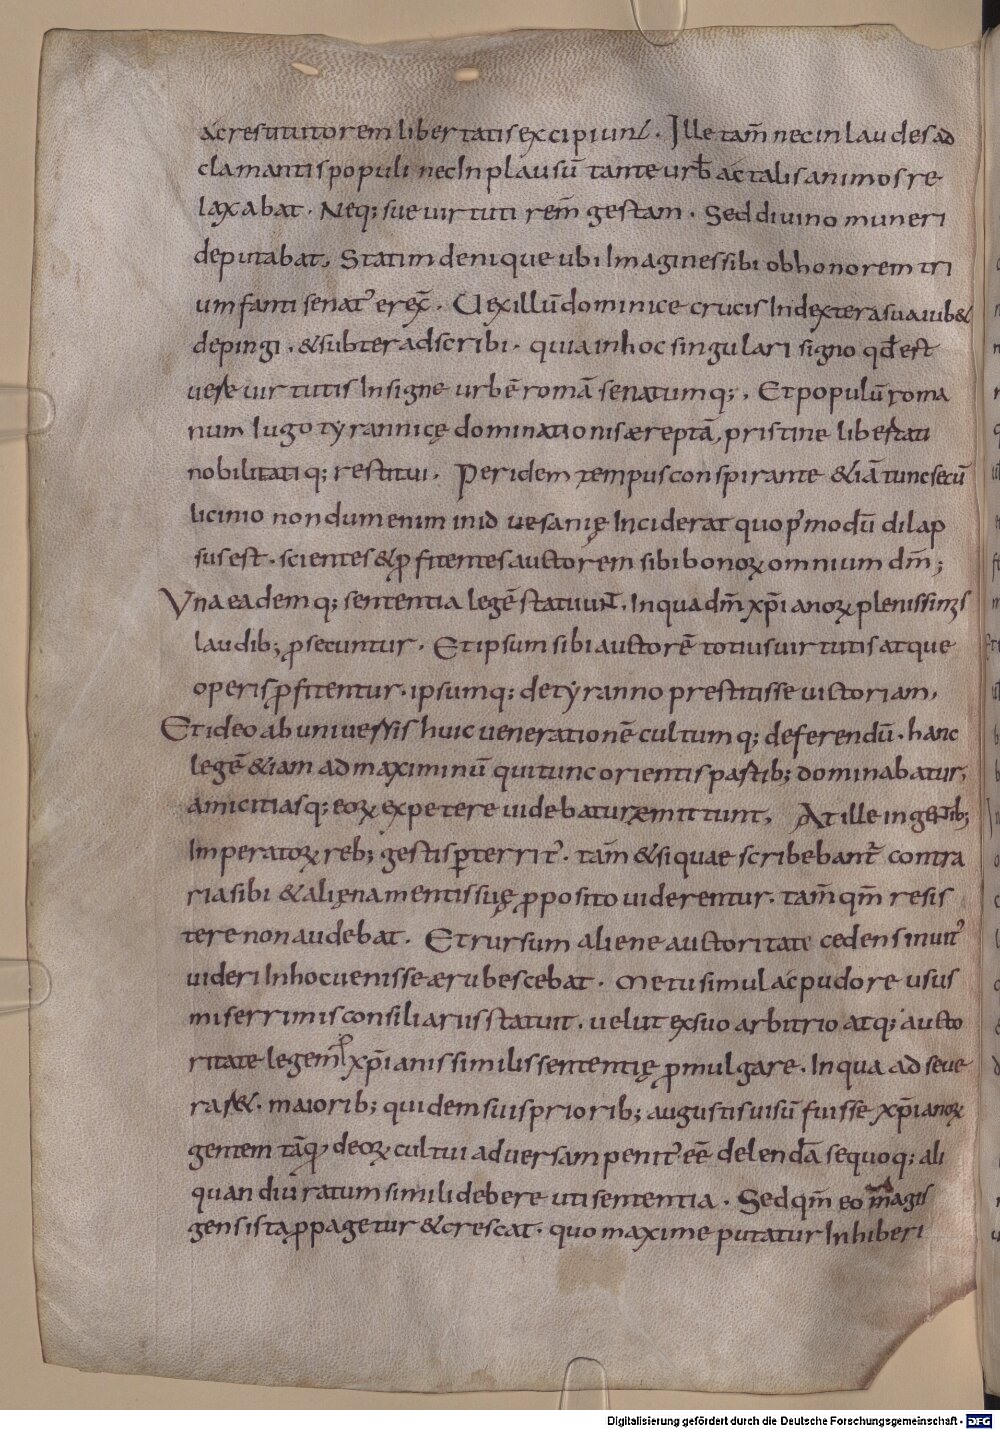 acrestitutorem libertatis excipiunt. Ille tam̄ nec in laudes ad
clamantis populi nec In plausū tante urb̄ ac talis animos re
laxabat. Neq; sue uirtuti rem̄ gestam. Sed diuino muneri
deputabat. Statim denique ubi Imagines sibi ob honorem tri
umfanti senat᾽ erex̄. Uexillū dominice crucis In dextera sua iub&
depingi. & subter adscribi. quia in hoc singulari signo qđ est
uere uirtutis Insigne urbē romā senatumq;. Et populū roma
num Iugo tyrannicę dominationis æreptā, pristine libertati
nobilitatiq; restitui. Per idem tempus conspirante & iā tunc secū
licinio nondum enim in id uesanię Inciderat quo p᾽modū dilap
sus est. scientes & ꝓfitentes auctorem sibi bonoꝝ omnium dm̄;
Vna eademq; sententia legē statuunt. In qua dm̄ xp̄ianoꝝ plenissimis
laudib; ꝓsecuntur. Et ipsum sibi auctorē totius uirtutis atque
operis ꝓfitentur. ipsumq; de tyranno prestitisse uictoriam,
Et ideo ab uniuersis huic uenerationē cultumq; deferendū. hanc
legē &iam ad maximinū qui tunc orientis partib; dominabatur,
amicitiasq; eoꝝ expetere uidebatur remittunt. At ille ingentib;
Imperatoꝝ reb; gestis ꝑterrit᾽. tam̄ & si quae scribebant᾽ contra
ria sibi & aliena mentis suę ꝓposito uiderentur. tam̄ qm̄ resis
tere non audebat. Et rursum aliene auctoritate cedens inuit᾽
uideri In hoc uenisse ærubescebat. Metu simul ac pudore usus
miserrimis consiliariis statuit. uelut ex suo arbitrio atq; aucto
ritate legem ꝓ xp̄ianis similis sententię ꝓmulgare. In qua adseue
rar&. maiorib; quidem suis priorib; augustis uisū fuisse xp̄ianoꝝ
gentem tāq̄ deoꝝ cultui aduersam penit᾽ eē delendā se quoq; ali
quandiu ratum simili debere uti sententia. Sed qm̄ eo magis
gens ista ꝓpagetur & crescat. quo maxime putatur Inhiberi
Digitalisierung gefördert durch die Deutsche Forschungsgemeinschaft - DFG